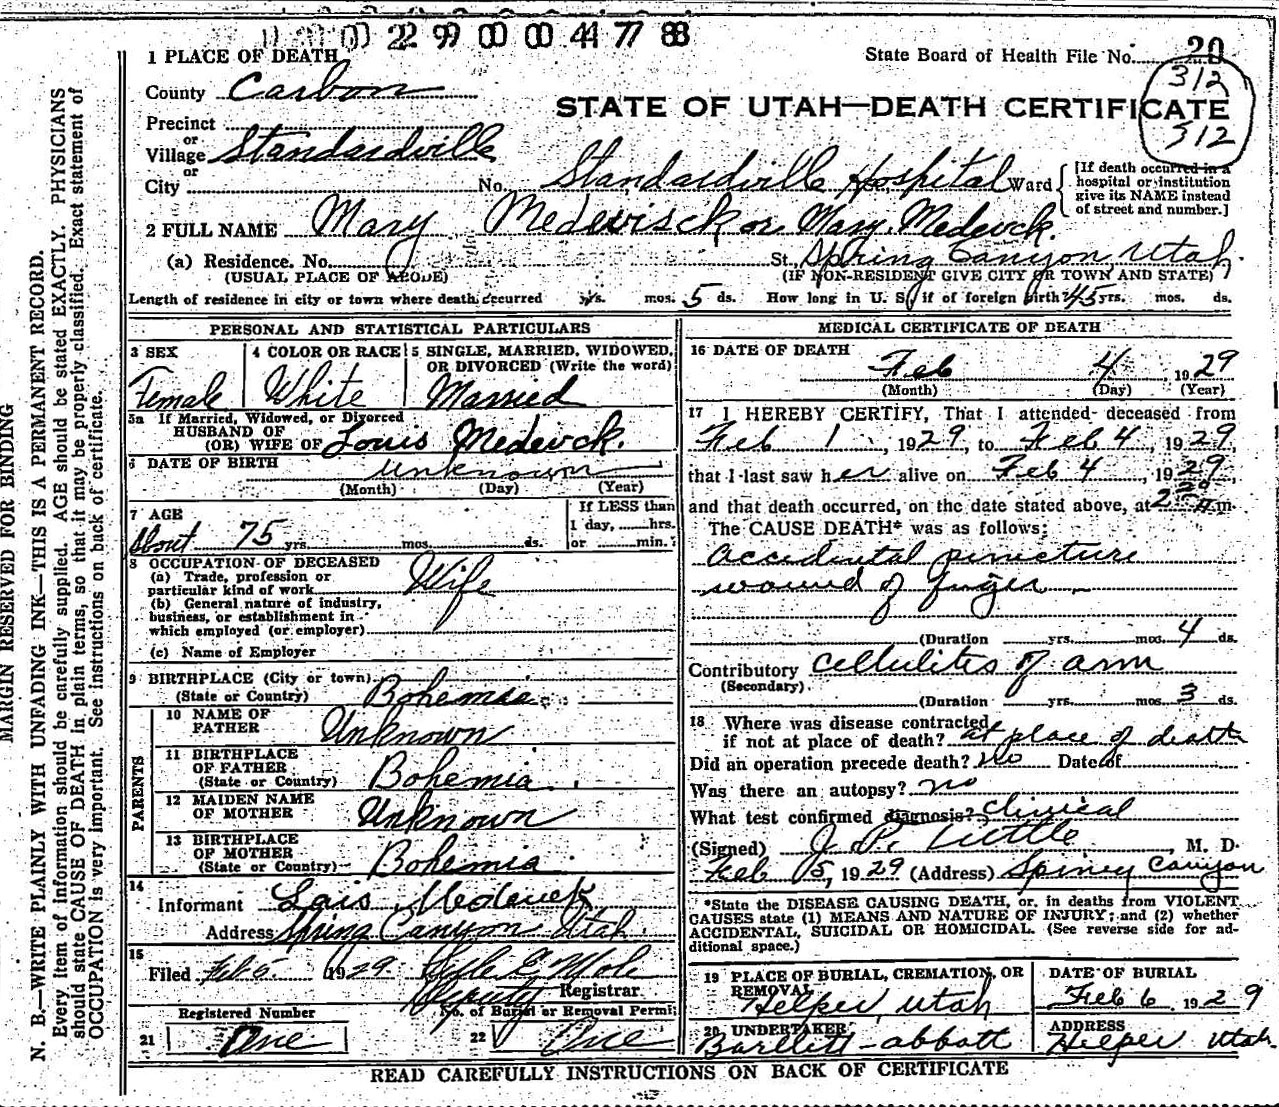 22 99 00 00 44 77 88
1 PLACE OF DEATH
State Board of Health File No. 20
312
312
County Carbon
STATE OF UTAH—DEATH CERTIFICATE
Precinct
or
Village Standardville
or
City No. Standardville Hospital Ward
[If death occurred in a hospital or institution give its NAME instead of street and number.]
2 FULL NAME Mary Medevisck or Mary Medevck.
(a) Residence. No. St. Spring Canyon, Utah.
(USUAL PLACE OF ABODE) (IF NON-RESIDENT GIVE CITY OR TOWN AND STATE)
Length of residence in city or town where death occurred yrs. mos. 5 ds. How long in U. S. if of foreign birth? 45 yrs. mos. ds.
PERSONAL AND STATISTICAL PARTICULARS
3 SEX 4 COLOR OR RACE 5 SINGLE, MARRIED, WIDOWED,
OR DIVORCED (Write the word)
Female White Married
5a If Married, Widowed, or Divorced
HUSBAND OF
(OR) WIFE OF Louis Medevck.
6 DATE OF BIRTH unknown
(Month) (Day) (Year)
7 AGE If LESS than
1 day, hrs.
About 75 yrs. mos. ds. or min.?
8 OCCUPATION OF DECEASED
(a) Trade, profession or
particular kind of work Wife
(b) General nature of industry,
business, or establishment in
which employed (or employer)
(c) Name of Employer
9 BIRTHPLACE (City or town)
(State or Country) Bohemia
PARENTS
10 NAME OF
FATHER Unknown
11 BIRTHPLACE
OF FATHER
(State or Country) Bohemia
12 MAIDEN NAME
OF MOTHER Unknown
13 BIRTHPLACE
OF MOTHER
(State or Country) Bohemia
14
Informant Lois Medevck
Address Spring Canyon Utah.
15
Filed Feb 6 1929
Deputy Registrar
Registered Number No. of Burial or Removal Permit
21 One 22 One
MEDICAL CERTIFICATE OF DEATH
16 DATE OF DEATH
Feb 4, 1929
(Month) (Day) (Year)
17 I HEREBY CERTIFY, That I attended deceased from
Feb 1, 1929, to Feb 4 1929
that I last saw her alive on Feb 4, 1929,
and that death occurred, on the date stated above, at m.
The CAUSE DEATH* was as follows:
Accidental puncture
wound of finger
(Duration yrs. mos. 4 ds.
Contributory Cellulites of arm
(Secondary)
(Duration yrs. mos. 3 ds.
18 Where was disease contracted
if not at place of death? at place of death
Did an operation precede death? no Date of
Was there an autopsy? no
What test confirmed diagnosis? Clinical
(Signed) J. P. Tuttle, M. D.
Feb 5, 1929 (Address) Spring Canyon
*State the DISEASE CAUSING DEATH, or, in deaths from VIOLENT
CAUSES state (1) MEANS AND NATURE OF INJURY; and (2) whether
ACCIDENTAL, SUICIDAL OR HOMICIDAL. (See reverse side for ad-
ditional space.)
19 PLACE OF BURIAL, CREMATION, OR
REMOVAL
Helper, Utah
DATE OF BURIAL
Feb 6 1929
20 UNDERTAKER
Bartlett - Abbott
ADDRESS
Helper Utah.
READ CAREFULLY INSTRUCTIONS ON BACK OF CERTIFICATE
MARGIN RESERVED FOR BINDING
N. B.—WRITE PLAINLY WITH UNFADING INK—THIS IS A PERMANENT RECORD.
Every item of information should be carefully supplied. AGE should be stated EXACTLY. PHYSICIANS
should state CAUSE OF DEATH in plain terms, so that it may be properly classified. Exact statement of
OCCUPATION is very important. See instructions on back of certificate.